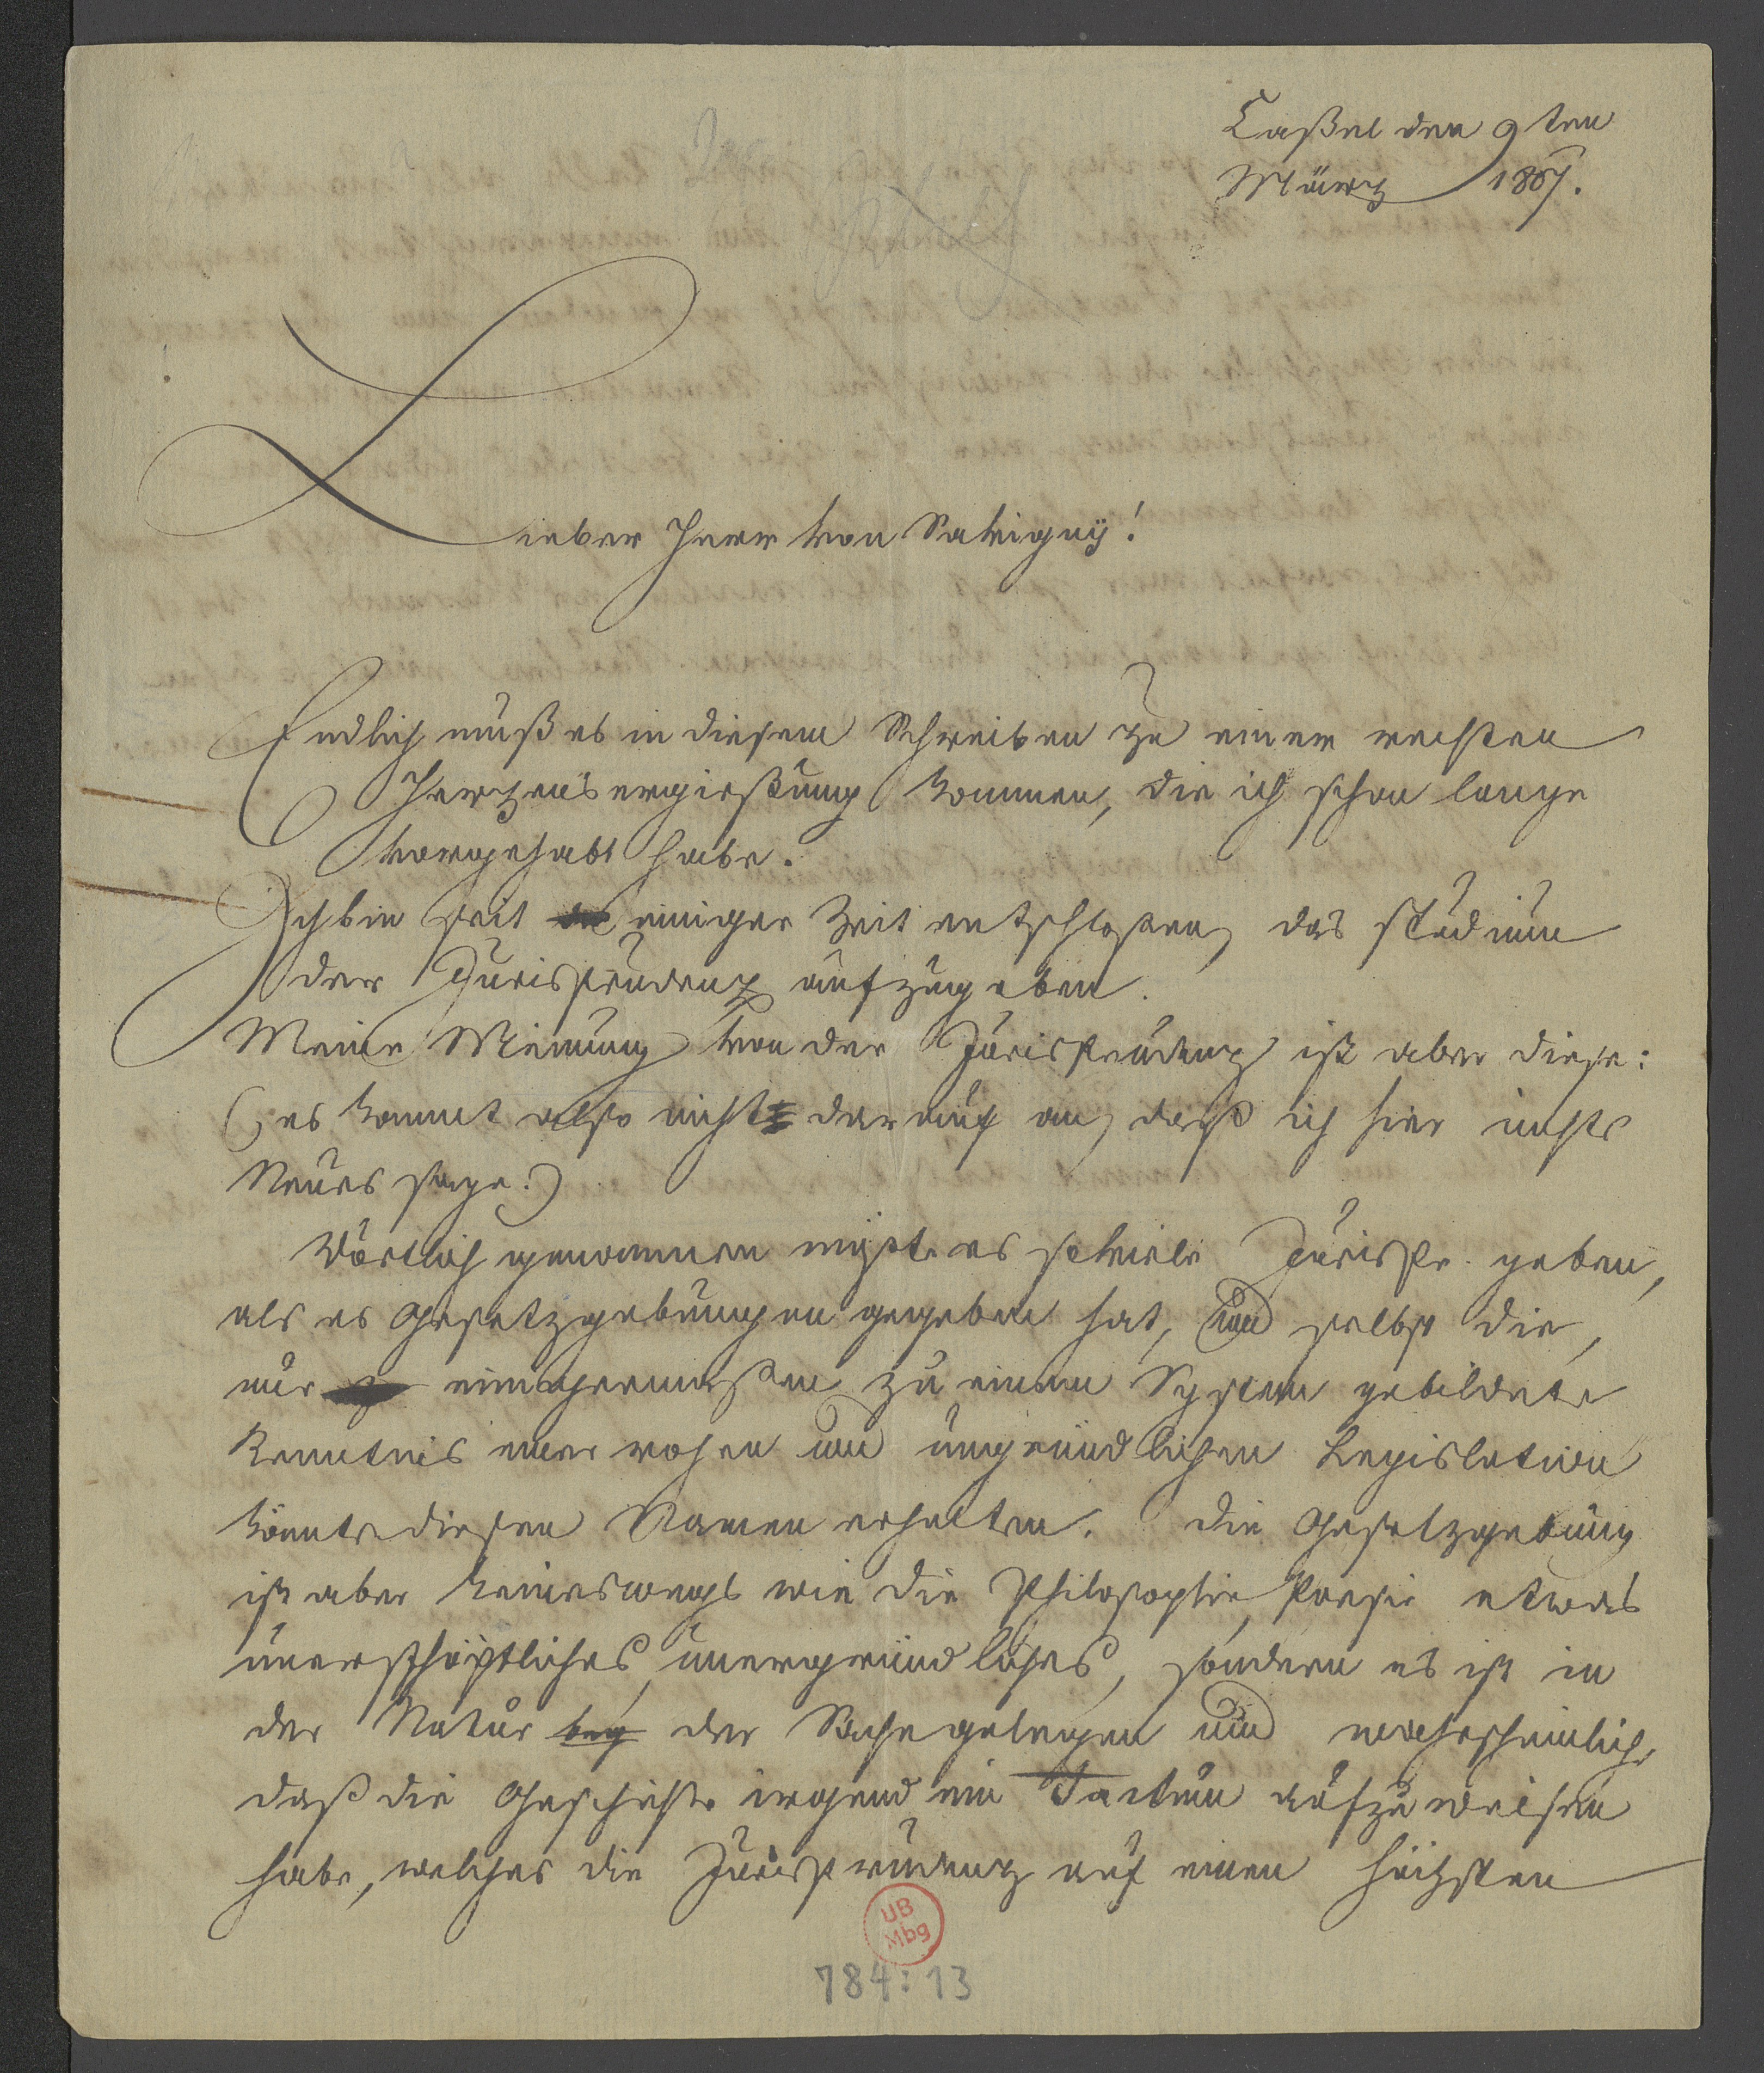 Caßel den 9ten
März 1807.
Lieber Herr von Savigny!
Endlich muß es in diesem Schreiben zu einer rechten
Herzensergießung kommen, die ich schon lange
vorgehabt habe.
Ich bin seit einiger Zeit entschloßen, das studium
der Jurisprudenz aufzugeben.
Meine Meinung von der Jurisprudenz ist aber diese:
(es kommt also nicht darauf an, daß ich hier nichts
Neues sage.)
Wörtlich genommen müßte es soviele Jurispr. geben,
als es Gesetzgebungen gegeben hat, und selbst die,
nur einigermaßen zu einem System gebildete
Kenntnis einer rohen und ungründlichen Legislation
könnte diesen Namen erhalten. Die Gesetzgebung
ist aber keineswegs wie die Philosophie, Poesie etwas
unerschöpfliches, unergründliches, sondern es ist in
der Natur bey der Sache gelegen und wahrscheinlich,
daß die Geschichte irgend ein Factum aufzuweisen
habe, welches die Jurisprudenz auf einen höchsten
UB
Mbg
784:13